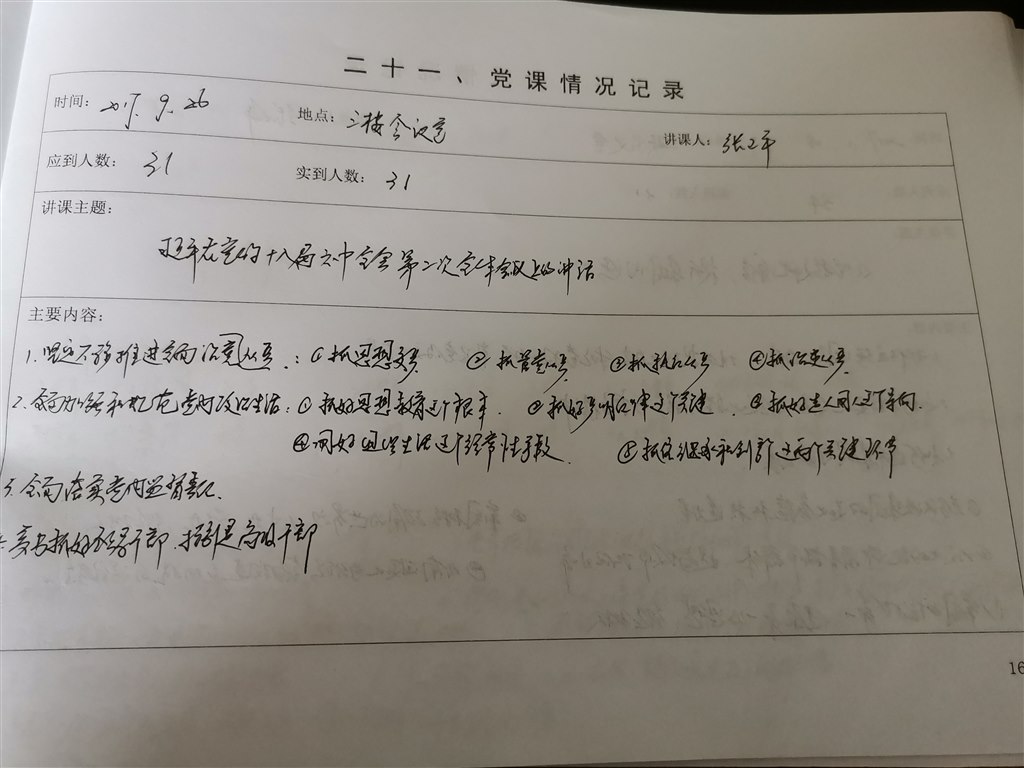 二十一、党课情况记录
时间：2017.9.26 地点：三楼会议室 讲课人：张卫平
应到人数：31 实到人数：31
讲课主题：
在党的十八届六中全会第二次全体会议上的讲话
主要内容：
1.坚定不移推进全面从严治党：①抓思想从严 ②抓管党从严 ③抓执纪从严 ④抓治吏从严
2.加强和规范党内政治生活：①抓好思想教育这个根本 ②抓好严明纪律这个关键 ③抓好选人用人这个导向
④用好组织生活这个经常性手段 ⑤抓住继承和创新这两个关键环节
3.全面落实党内监督责任
抓好领导干部、特别是高级干部
16